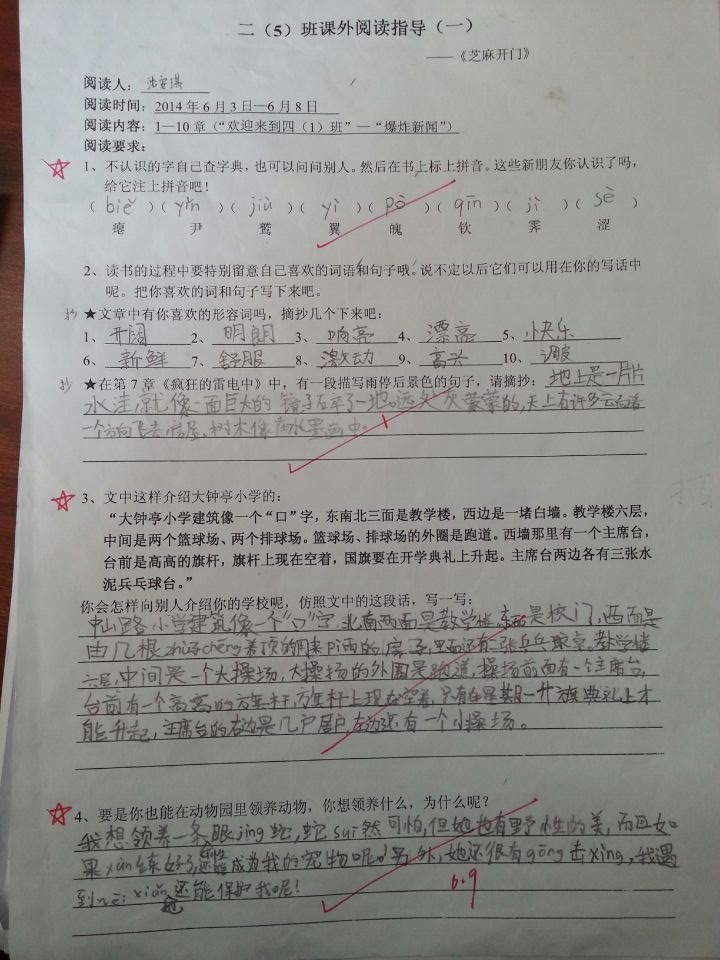 二（5）班课外阅读指导（一）
——《芝麻开门》
阅读人：
阅读时间：2014年6月3日—6月8日
阅读内容：1—10章（“欢迎来到四（1）班”—“爆炸新闻”）
阅读要求：
1、不认识的字自己查字典，也可以问问别人。然后在书上标上拼音。这些新朋友你认识了吗，
给它注上拼音吧！
（biě）（yǐn）（jiù）（yì）（pò）（qīn）（jì）（sè）
瘪 尹 鹫 翼 魄 钦 霁 涩
2、读书的过程中要特别留意自己喜欢的词语和句子哦。说不定以后它们可以用在你的写话中
呢。把你喜欢的词和句子写下来吧。
抄 ★文章中有你喜欢的形容词吗，摘抄几个下来吧：
1、开阔 2、明朗 3、响亮 4、漂亮 5、快乐
6、新鲜 7、舒服 8、激动 9、高兴 10、调皮
抄 ★在第7章《疯狂的雷电中》中，有一段描写雨停后景色的句子，请摘抄：地上是一片片
水洼，就像一面巨大的镜子石卒了一地。远处灰蒙蒙的，天上有许多云向着
一个方向飞去，房屋、树木像在水墨画中。
3、文中这样介绍大钟亭小学的：
“大钟亭小学建筑像一个“口”字，东南北三面是教学楼，西边是一堵白墙。教学楼六层，
中间是两个篮球场、两个排球场。篮球场、排球场的外圈是跑道。西墙那里有一个主席台，
台前是高高的旗杆，旗杆上现在空着，国旗要在开学典礼上升起。主席台两边各有三张水
泥乒乓球台。”
你会怎样向别人介绍你的学校呢，仿照文中的这段话，写一写：
中山路小学建筑像一个“口”字，北南两面是教学楼，东面是校门，西面是
由几根zhù子chēng着顶的用来pì雨的房子，里面还有一张乒乓球桌。教学楼
六层，中间是一个大操场，大操场的外围是跑道，操场前面有一个主席台，
台前有一个高高的旗杆，旗杆上现在空着，只有在星期一升旗典礼上才
能升起，主席台的右边是几户居户，左边还有一个小操场。
4、要是你也能在动物园里领养动物，你想领养什么，为什么呢？
我想领养一条眼jing蛇，蛇suī然可怕，但她也有野性的美，而且如
果xùn练好了，还能成为我的宠物呢！另外，她还很有gōng击xìng，我遇
到wēi xiǎn她还能保护我呢！
6.9